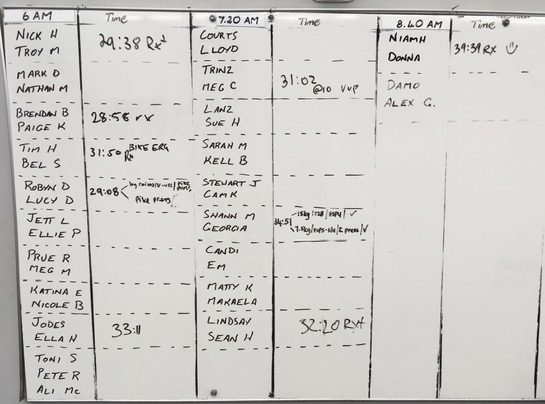 6 AM Time
NICK H 29:38 Rx+
TROY M
MARK D
NATHAN M
BRENDAN B 28:58
PAIGE K
TIM H 31:50 BIKE ERG
BEL S Rx
ROBYN D 29:08
LUCY D Pike press
JETT L
ELLIE P
PRUE R
MEG M
KATINA E
NICOLE B
JODES 33:11
ELLA H
TONI S
PETE R
ALI Mc
7.20 AM Time
COURTS
LLOYD
TRINZ
MEG C 31:02 @10 VUP
LANZ
SUE H
SARAH M
KELL B
STEWART J
CAM K
SHAWN M
GEORGIA
CANDI
EM
MATTY K
MAKAELA
LINDSAY 32:20 RX+
SEAN H
8.40 AM Time
NIAMH 39:39 RX
DONNA
DAMO
ALEX G.